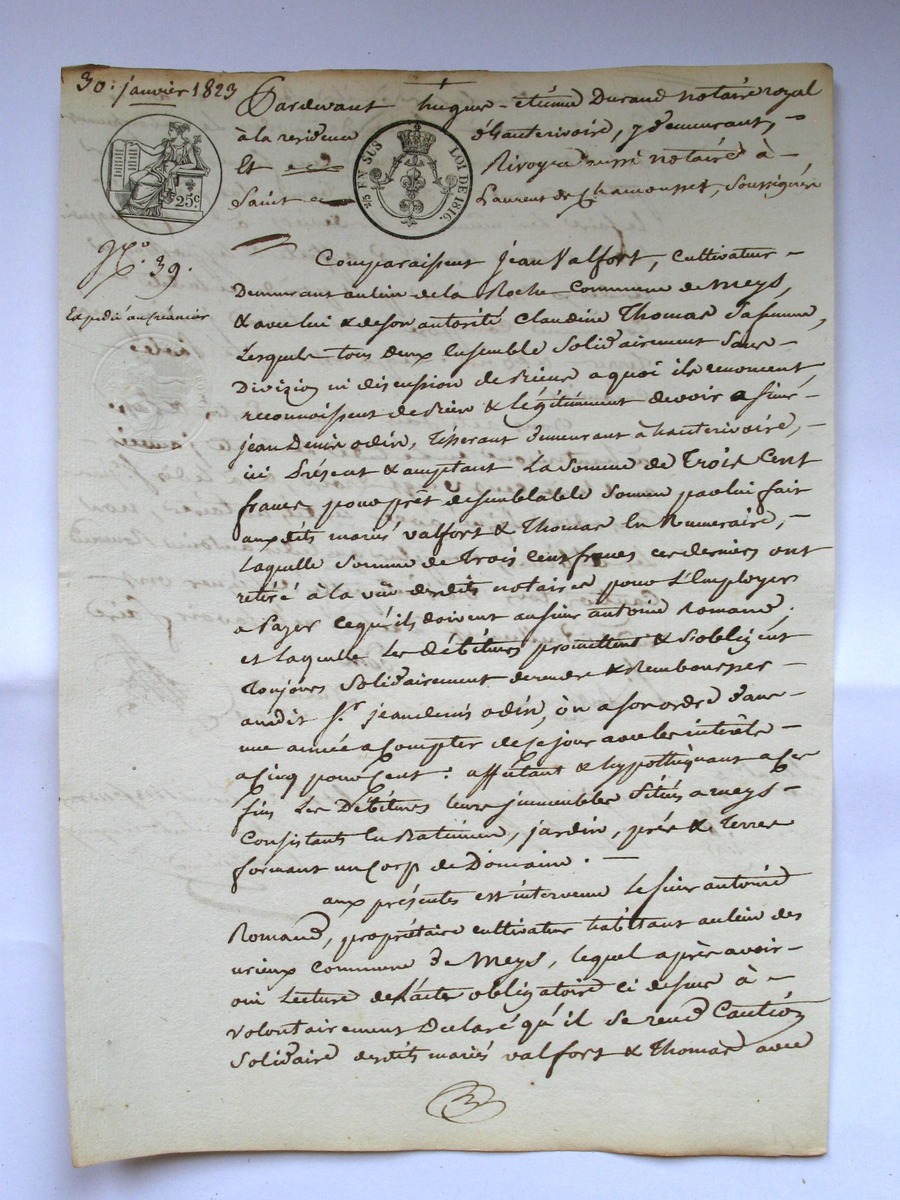 30: janvier 1823
Pardevant hugue-étienne Durand notaire royal
à la residence d'hauterivoire, y demeurant,
Et Rivoyre aussi notaire à
Saint Laurent de Chamousset, soussignés
25c
EN SUS
LOI DE 1816.
25c
N.o 39.
Expedié au créancier
Comparaissent jean Valfort, cultivateur
Demeurant au lein de la Roche commune de Meys,
& avec lui & de son autorité Claudine Thomas sa femme,
Lesquels tous deux Ensemble Solidairement Sans
Division ni discussion de biens a quoi ils renoncent,
reconnoissent de bien & légitimement devoir a sieur
jean Denis odin, Tisserant demeurant à hauterivoire,
ici présent & acceptant La somme de Trois Cent
francs, pour prêt de semblable somme par lui fait
auxdits mariés valfort & Thomas En Numeraire,
Laquelle somme de trois Cent francs ces derniers ont
retiré à la vue desdits notaires pour L'Employer
a payer ce qu'ils doivent au sieur antoine Romand,
et laquelle Les débiteurs promettent & s'obligent
toujours solidairement de rendre & Rembourser
audit Sr. jean denis odin, ou a son ordre dans
une année a Compter de ce jour avec les intérêts
a Cinq pour Cent: affectant & hypothéquant a ces
fins Les Débiteurs leurs jmmeubles Situés a meys
Consistants En Batimens, jardin, prés & Terres
formant un Corp de Domaine.
aux présentes est intervenu Le sieur antoine
Romand, propriétaire cultivateur habitant au lein des
urieux commune de Meys, lequel après avoir
oui Lecture de l'acte obligatoire ci dessus à
volontairement Declaré qu'il se rend Caution
Solidaire desdits mariés valfort & Thomas avec